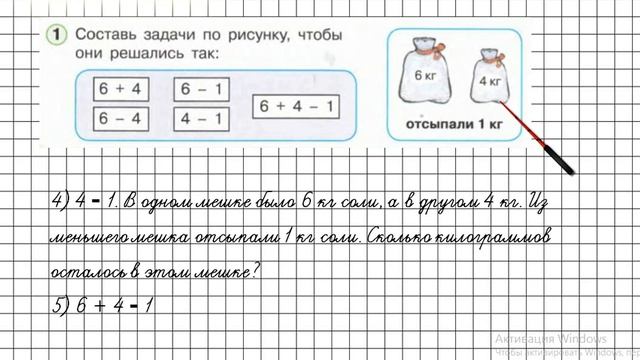 1 Составь задачи по рисунку, чтобы
они решались так:
6 + 4
6 − 1
6 + 4 − 1
6 − 4
4 − 1
6 кг
4 кг
отсыпали 1 кг
4) 4 - 1. В одном мешке было 6 кг соли, а в другом 4 кг. Из
меньшего мешка отсыпали 1 кг соли. Сколько килограммов
осталось в этом мешке?
5) 6 + 4 - 1
Активация Windows
Чтобы активировать Windows, пер